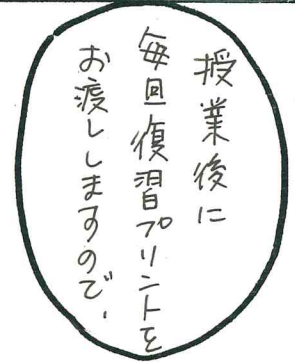 授業後に
毎回復習プリントを
お渡ししますので、